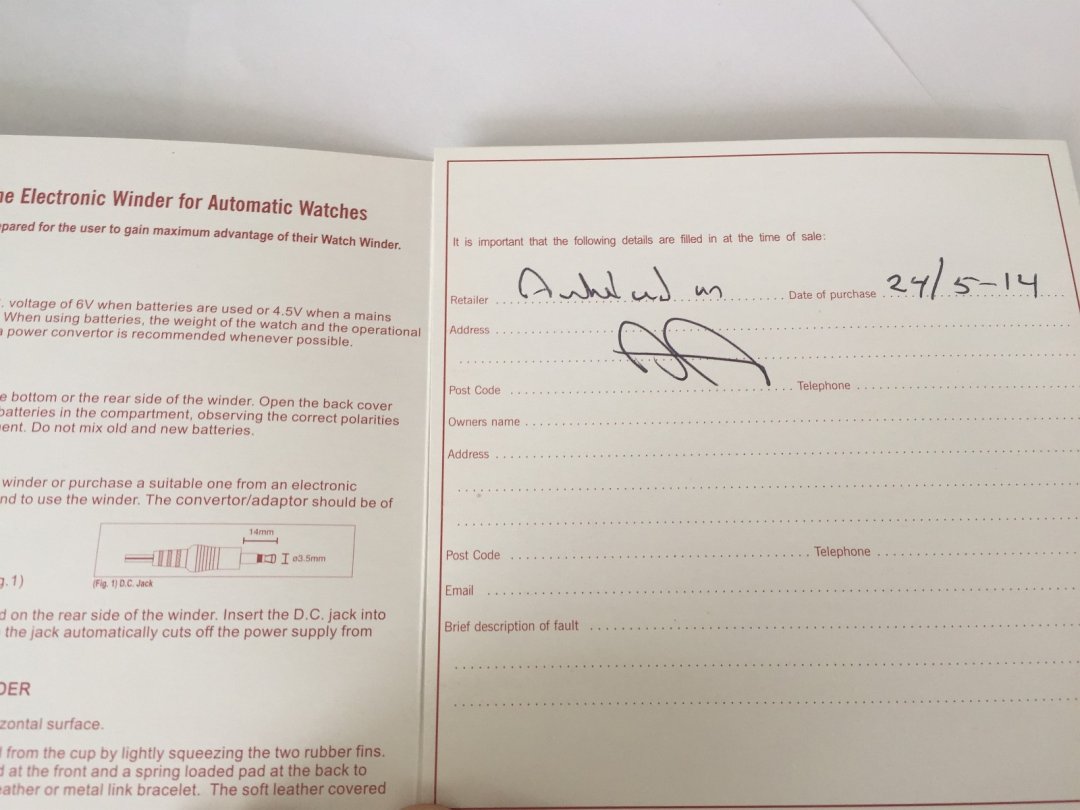 ne Electronic Winder for Automatic Watches
pared for the user to gain maximum advantage of their Watch Winder.
. voltage of 6V when batteries are used or 4.5V when a mains
When using batteries, the weight of the watch and the operational
a power convertor is recommended whenever possible.
e bottom or the rear side of the winder. Open the back cover
batteries in the compartment, observing the correct polarities
ent. Do not mix old and new batteries.
winder or purchase a suitable one from an electronic
nd to use the winder. The convertor/adaptor should be of
14mm
ø3.5mm
(Fig. 1) D.C. Jack
g. 1)
d on the rear side of the winder. Insert the D.C. jack into
the jack automatically cuts off the power supply from
DER
zontal surface.
from the cup by lightly squeezing the two rubber fins.
d at the front and a spring loaded pad at the back to
eather or metal link bracelet. The soft leather covered
It is important that the following details are filled in at the time of sale:
Retailer Date of purchase 24/5-14
Address
Post Code Telephone
Owners name
Address
Post Code Telephone
Email
Brief description of fault